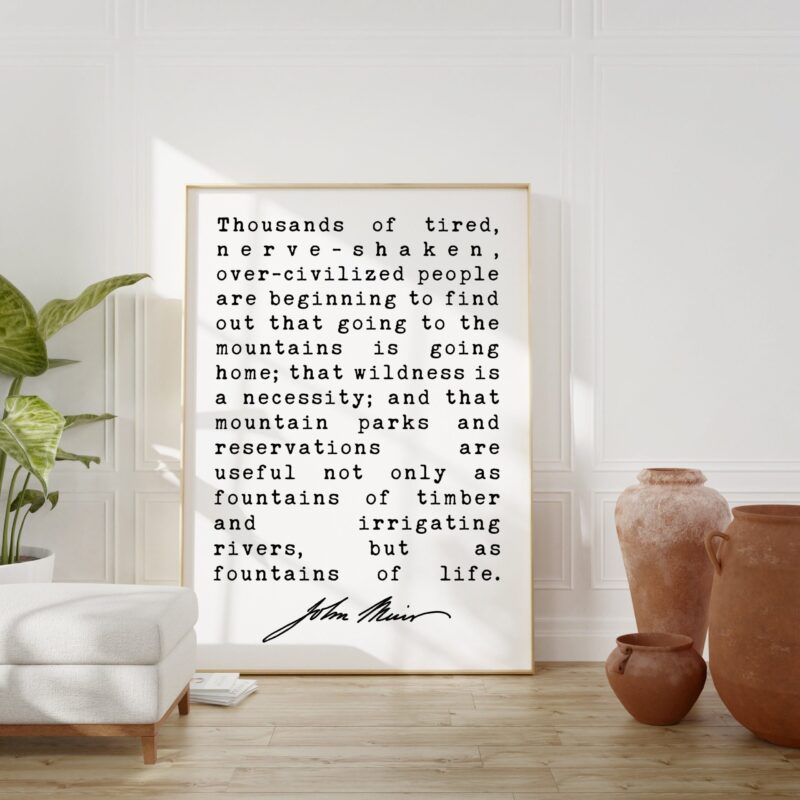 Thousands of tired,
nerve-shaken,
over-civilized people
are beginning to find
out that going to the
mountains is going
home; that wildness is
a necessity; and that
mountain parks and
reservations are
useful not only as
fountains of timber
and irrigating
rivers, but as
fountains of life.
John Muir